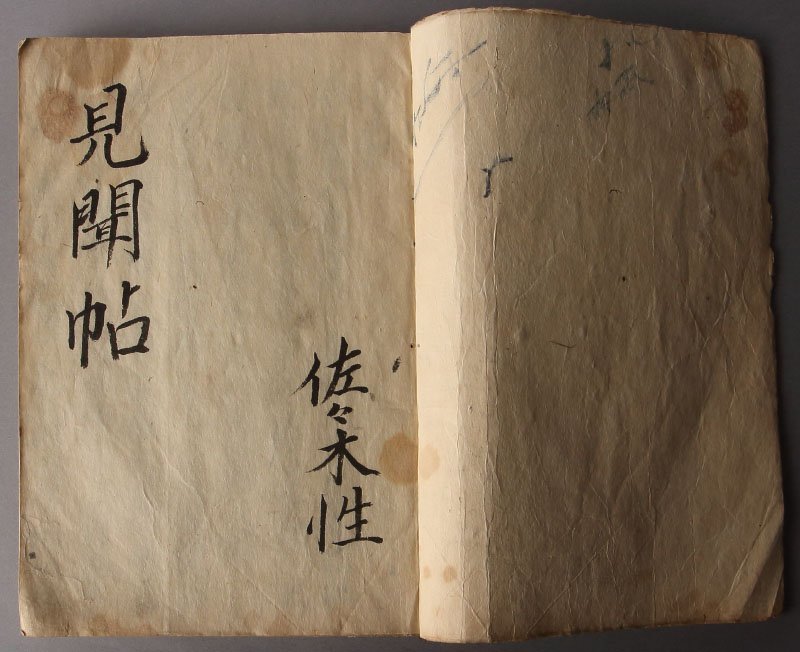 見聞帖
佐々木性